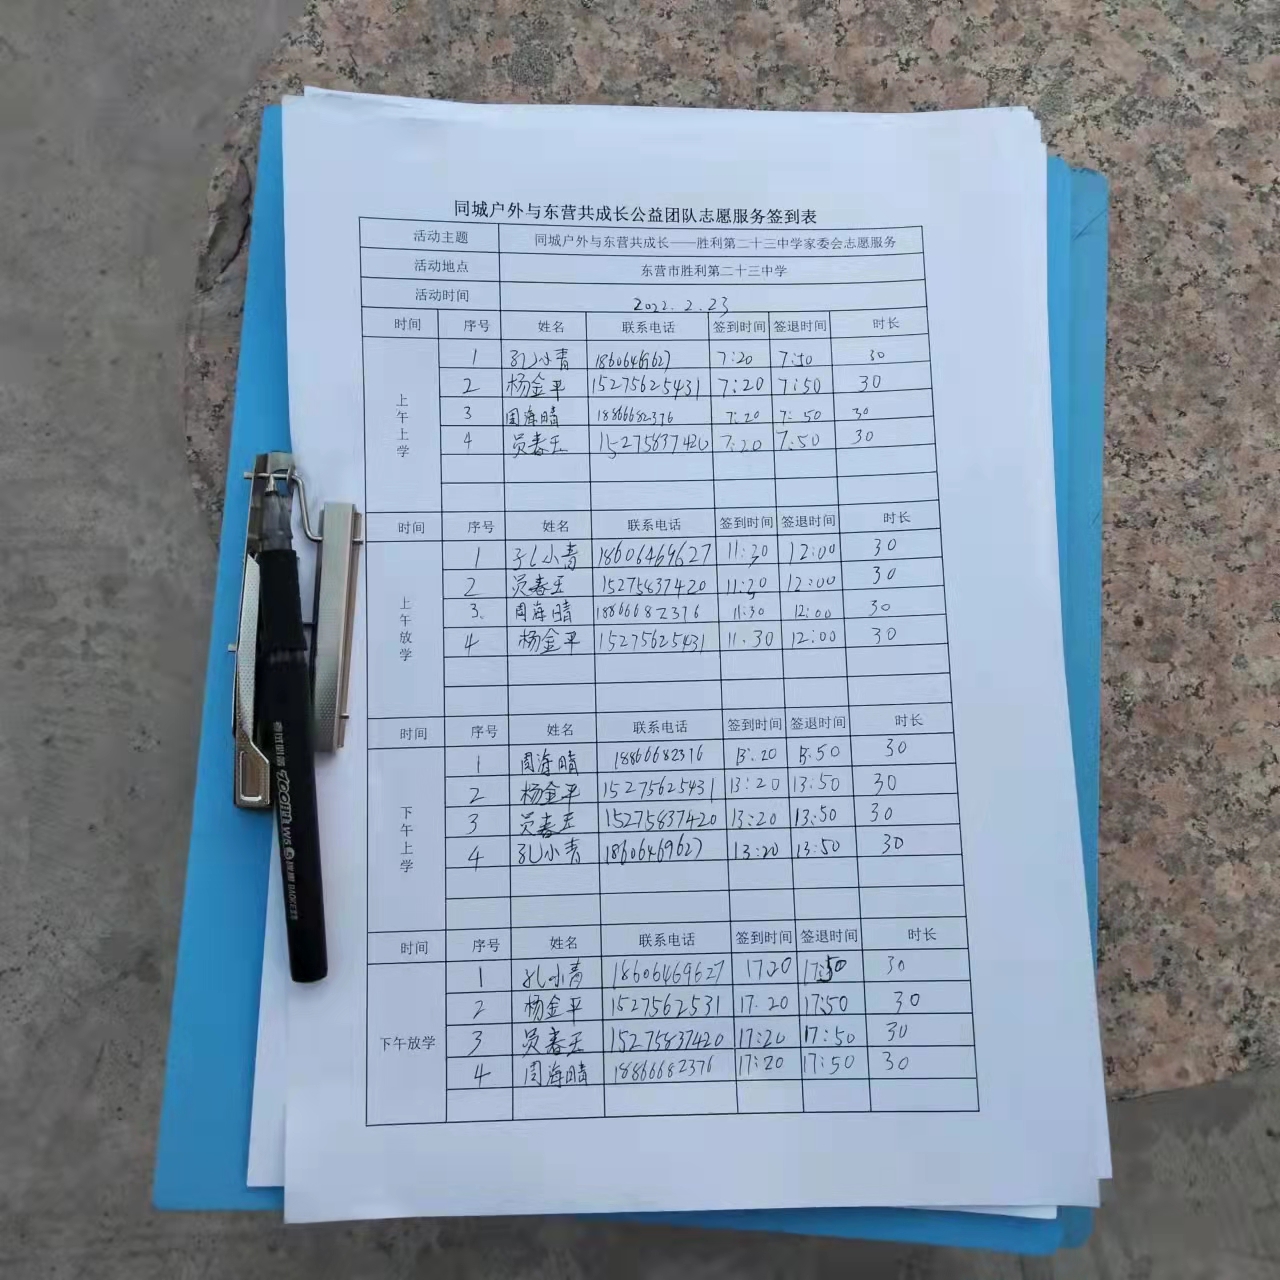 同城户外与东营共成长公益团队志愿服务签到表
活动主题 同城户外与东营共成长——胜利第二十三中学家委会志愿服务
活动地点 东营市胜利第二十三中学
活动时间 2022.2.23
时间 序号 姓名 联系电话 签到时间 签退时间 时长
上午上学
1 孔小青 18606469627 7:20 7:50 30
2 杨金平 15275625431 7:20 7:50 30
3 周海晴 18866682376 7:20 7:50 30
4 员春玉 15275837420 7:20 7:50 30
时间 序号 姓名 联系电话 签到时间 签退时间 时长
上午放学
1 孔小青 18606469627 11:30 12:00 30
2 员春玉 15275837420 11:30 12:00 30
3. 周海晴 18866682376 11:30 12:00 30
4 杨金平 15275625431 11.30 12:00 30
时间 序号 姓名 联系电话 签到时间 签退时间 时长
下午上学
1 周海晴 18866682376 13:20 13:50 30
2 杨金平 15275625431 13:20 13:50 30
3 员春玉 15275837420 13:20 13:50 30
4 孔小青 18606469627 13:20 13:50 30
时间 序号 姓名 联系电话 签到时间 签退时间 时长
下午放学
1 孔小青 18606469627 17:20 17:50 30
2 杨金平 1527562531 17:20 17:50 30
3 员春玉 15275837420 17:20 17:50 30
4 周海晴 18866682376 17:20 17:50 30